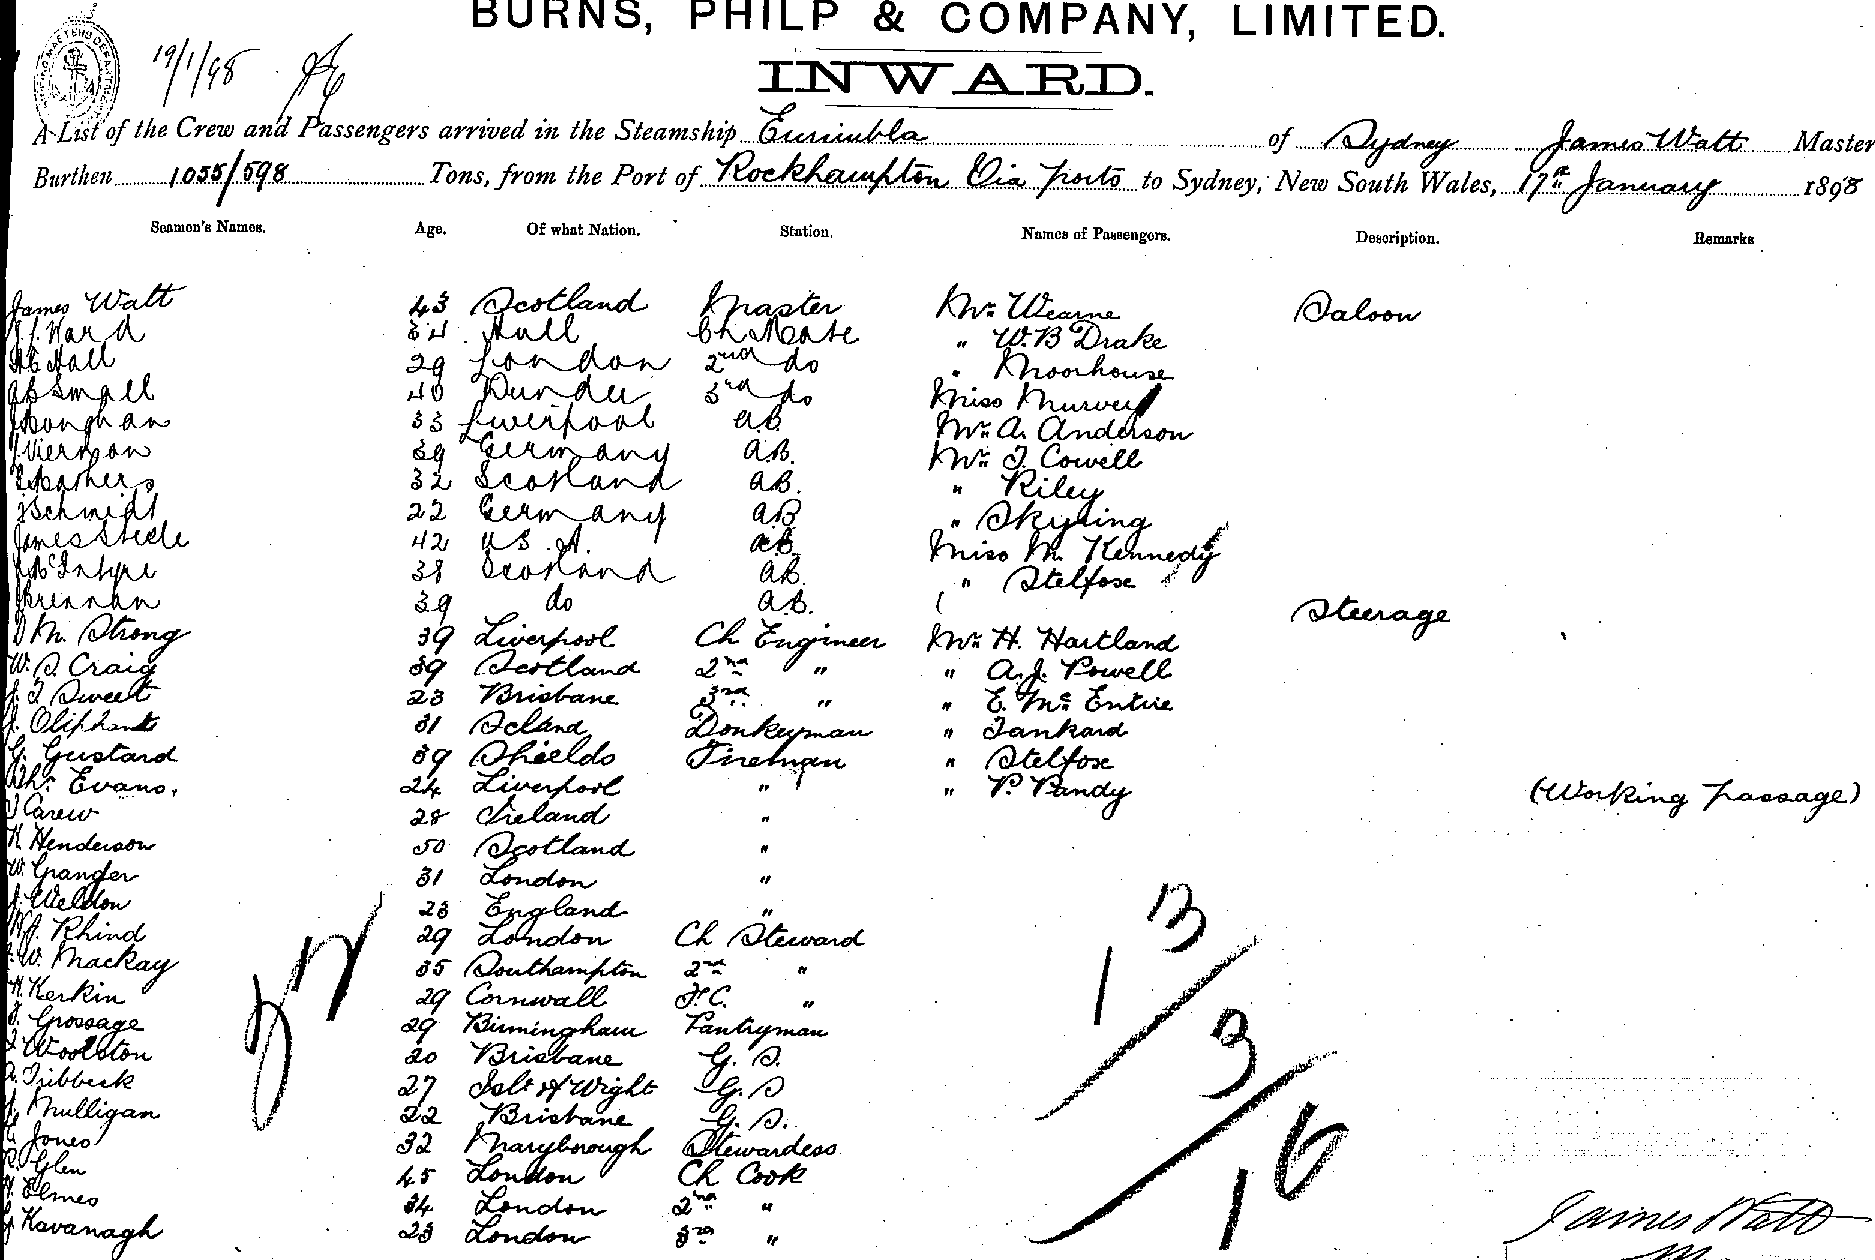 BURNS, PHILP & COMPANY, LIMITED.
19/1/98
INWARD.
A List of the Crew and Passengers arrived in the Steamship Eurimbla of Sydney James Watt Master
Burthen 1055/598 Tons, from the Port of Rockhampton Via ports to Sydney, New South Wales, 17th January 1898
Seamen's Names. Age. Of what Nation. Station. Names of Passengers. Description. Remarks
James Watt 43 Scotland Master Mr Wearne Saloon
Ward 34 Hull Ch Mate " W.B Drake
Hall 29 London 2nd do " Moorhouse
Small 40 Dundee 3rd do Miss Murvey
33 Liverpool A.B. Mr A. Anderson
Viernon 39 Germany A.B. Mr T. Cowell
Mathers 32 Scotland A.B. " Riley
Schmidt 22 Germany A.B " Skyring
James Steele 42 U.S.A. A.B. Miss M. Kennedy
McIntyre 38 Scotland A.B. " Stelfose
Brennan 39 do A.B. Steerage
D M. Strong 39 Liverpool Ch Engineer Mr H. Hartland
W. S. Craig 39 Scotland 2nd " " A.J. Powell
J. T. Sweet 23 Brisbane 3rd " " E. Mc Entire
J. Oliphant 31 Donkeyman " Tankard
G. Gustard 39 Shields Fireman " Stelfose
Thos. Evans, 24 Liverpool " " P. Pandy (Working passage)
T Carew 28 Ireland "
Henderson 50 Scotland "
W. Granger 31 London "
J. Weldon 23 England "
Rhind 29 London Ch Steward
W. Mackay 35 Southampton 2nd "
Kerkin 29 Cornwall F.C. "
Grossage 29 Birmingham Pantryman
Woolston 20 Brisbane G. S.
Tribbeck 27 Isle of Wight G. S
Mulligan 22 Brisbane G. S.
Jones 32 Maryborough Stewardess
Glen 45 London Ch Cook
Elmes 34 London 2nd "
Kavanagh 23 London 3rd "
32
13
3
16
James Watt